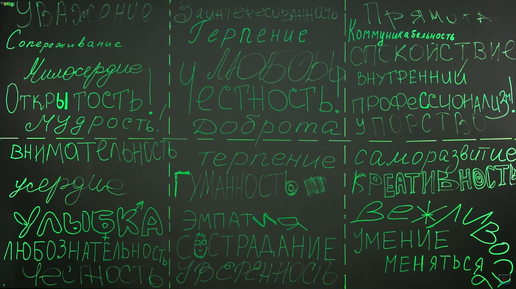 Уважение
Сопереживание
Милосердие
Открытость!
Мудрость!
Заинтересованность
Терпение
Любовь
Честность!
Доброта
Прямота
Коммуникабельность
Спокойствие
Внутренний
Профессионализм!
Упорство
Внимательность
Усердие
Улыбка
Любознательность
Честность
Терпение
Гуманность
Эмпатия
Сострадание
Уверенность
Саморазвитие
Креативность
Вежливость
Умение
меняться